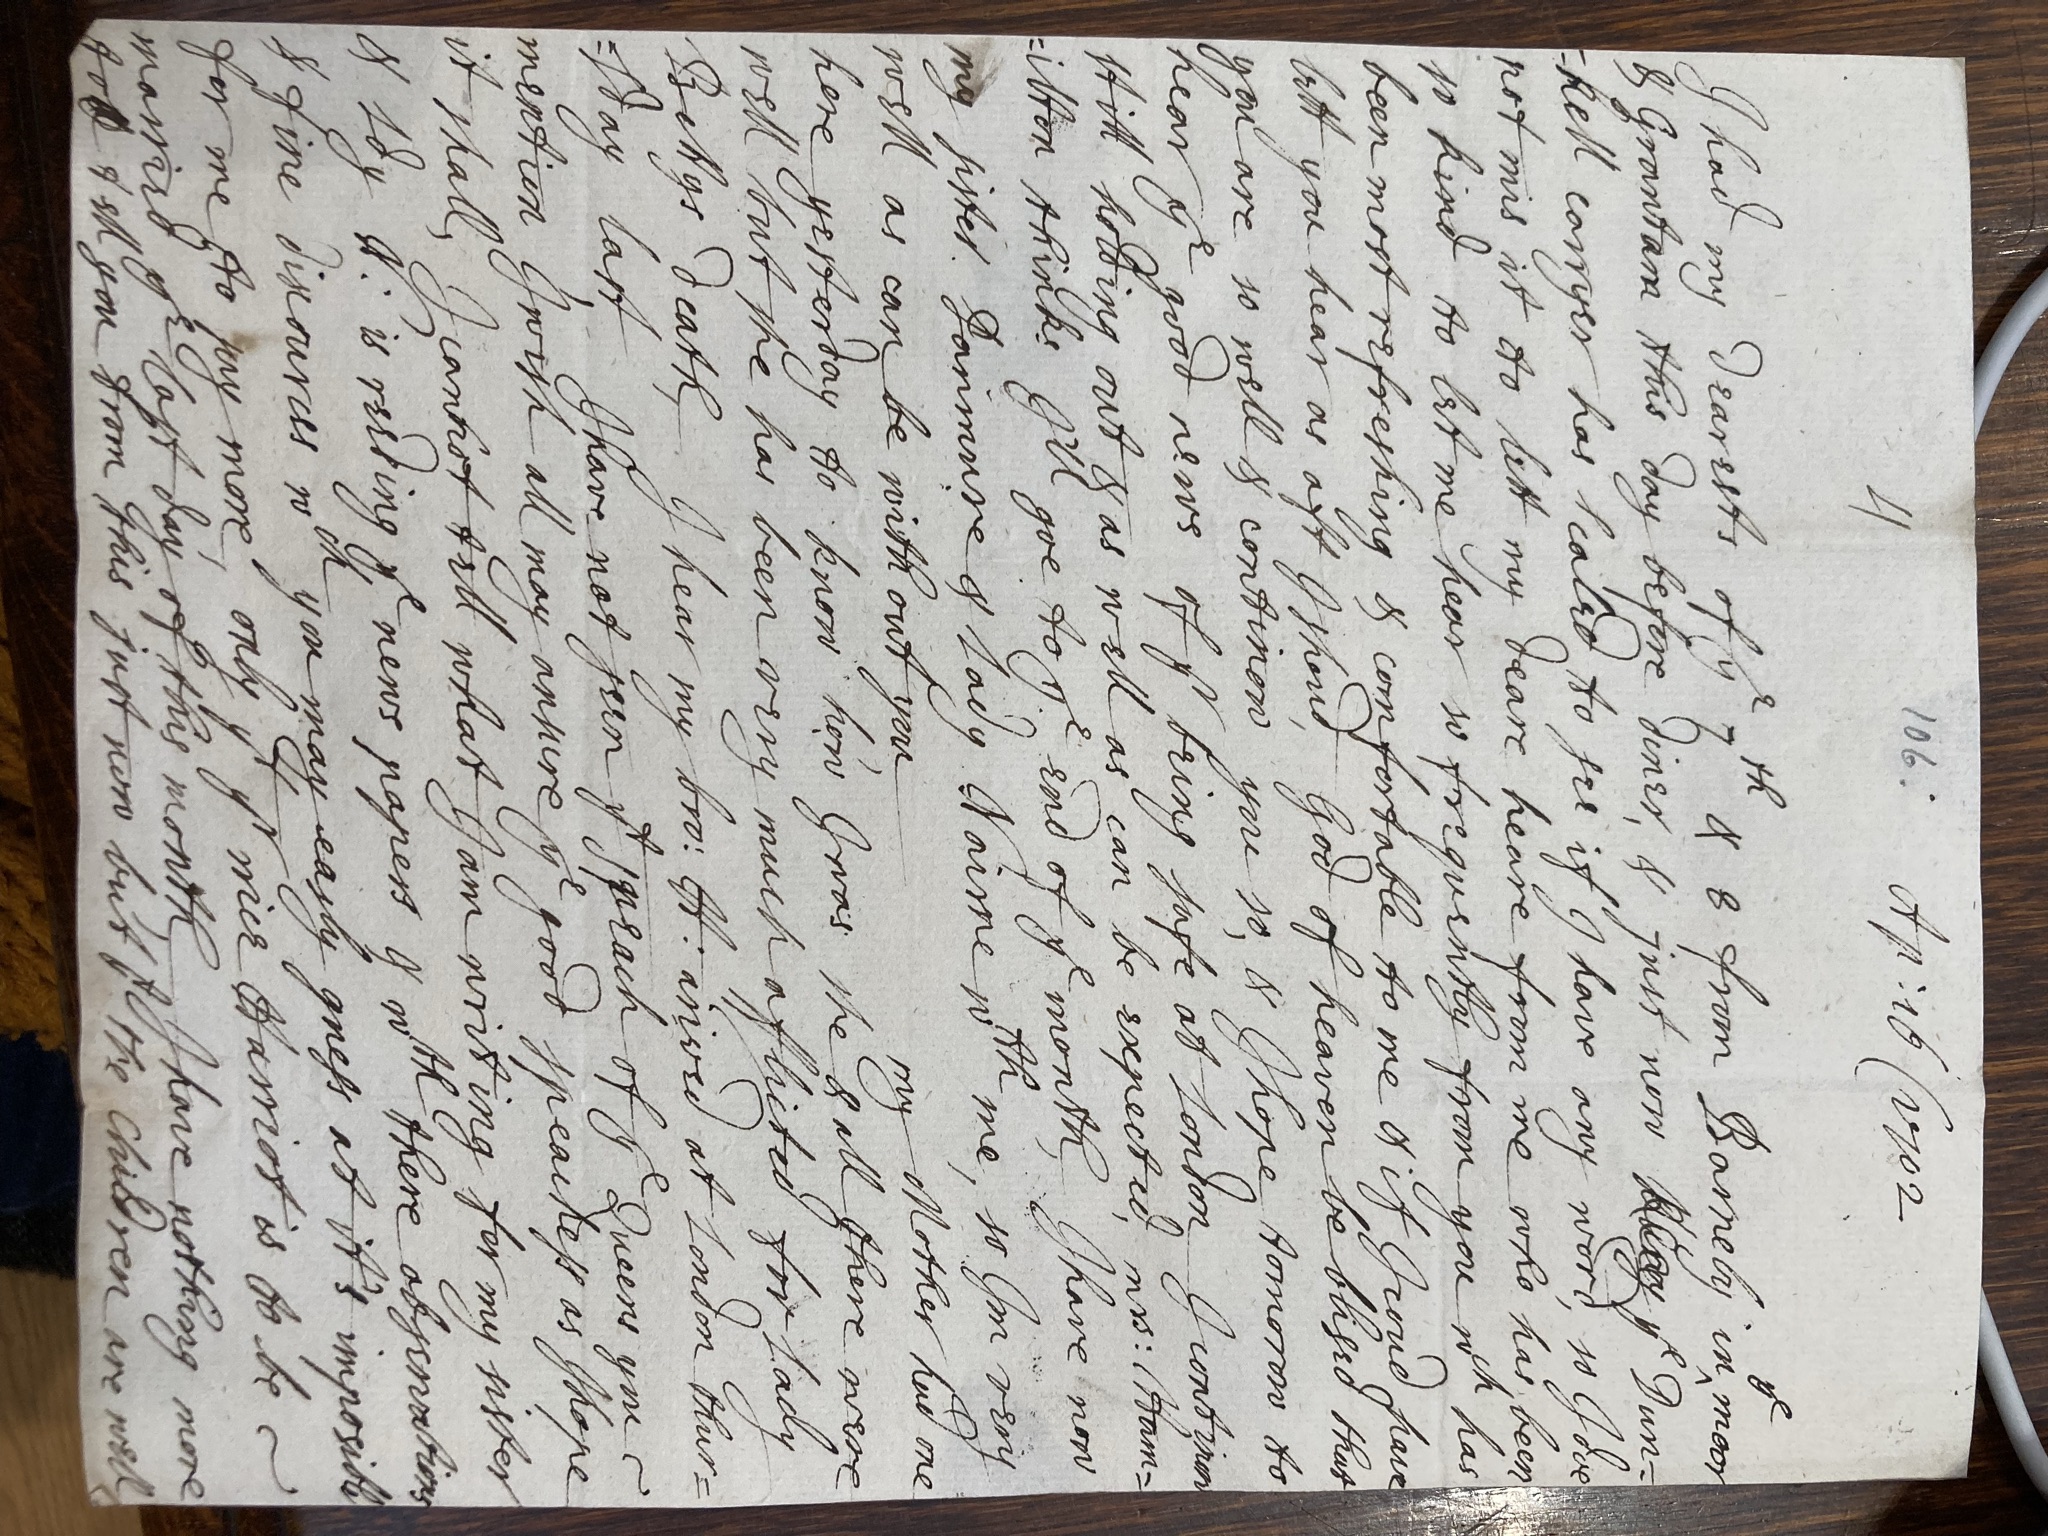 106:
4
Ap: 16 (1702
I had my dearests of ye 7th & 8 from Barneby in ye moor
& Grantam this day before diner, & just now ye Dun=
=kell carryer has caled to see if I have any word, so I doe
not mis it to lett my deare heare from me who has been
so kind to let me hear so frequently from you wch has
been most refreshing & comfortable to me & if I coud have
lett you hear as oft I shoud, God of heaven be blised that
you are so well & continow you so, & I hope tomorow to
hear ye good news of yr being safe at London I continow
still holding out & as well as can be expected, mrs: Ham=
=ilton thinks I'll goe to ye end of ye month, I have now
my sister Panmure & Lady Nairne wth me, so Im very
well as can be without you, my Mother had one
here yesterday to know how I was she & all there were
well but she has been very much afflicted for Lady
Bettys death, I hear my bro: H: arived at London thur=
=sday last, I have not seen yt speach of ye Queens you ~
mention I wish all may ansure ye good speachess as I hope
it shall, I cannot tell what I am writing for my sister
& Ldy N: is reeding ye news papers & wth there observations
& fine discourcess wch you may easly guess at it's imposible
for me to say more, only yt yr nice Harriot is to be ~
married ye last day of this month, I have nothing more
to tell you from this just now but yt the children are well,